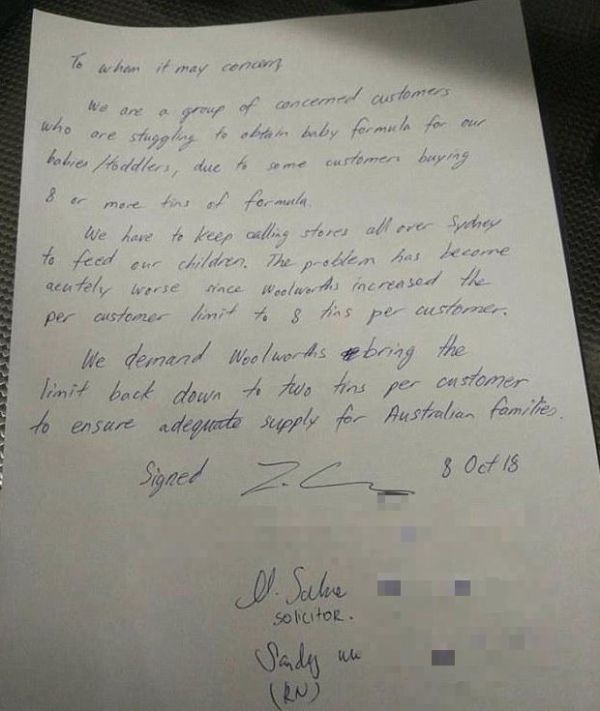 To whom it may concern
We are a group of concerned customers
who are stuggling to obtain baby formula for our
babies/toddlers, due to some customers buying
8 or more tins of formula.
We have to keep calling stores all over Sydney
to feed our children. The problem has become
acutely worse since Woolworths increased the
per customer limit to 8 tins per customer.
We demand Woolworths bring the
limit back down to two tins per customer
to ensure adequate supply for Australian families.
Signed 8 Oct 18
SOLICITOR.
Sandy
(RN)